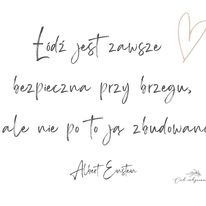 Łódź jest zawsze
bezpieczna przy brzegu,
ale nie po to ją zbudowano
Albert Einstein